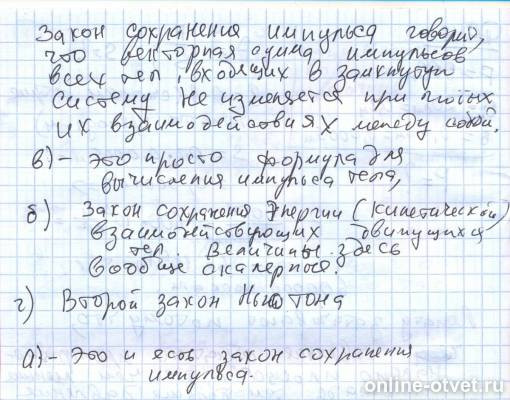 Закон сохранения импульса говорит,
что векторная сумма импульсов
всех тел, входящих в замкнутую
систему не изменяется при любых
их взаимодействиях между собой.
в) - это просто формула для
вычисления импульса тела,
б) Закон сохранения Энергии (кинетической)
взаимодействующих движущихся
тел. Величины здесь
вообще скалярные.
г) Второй закон Ньютона
а) - Это и есть закон сохранения
импульса.
online-otvet.ru